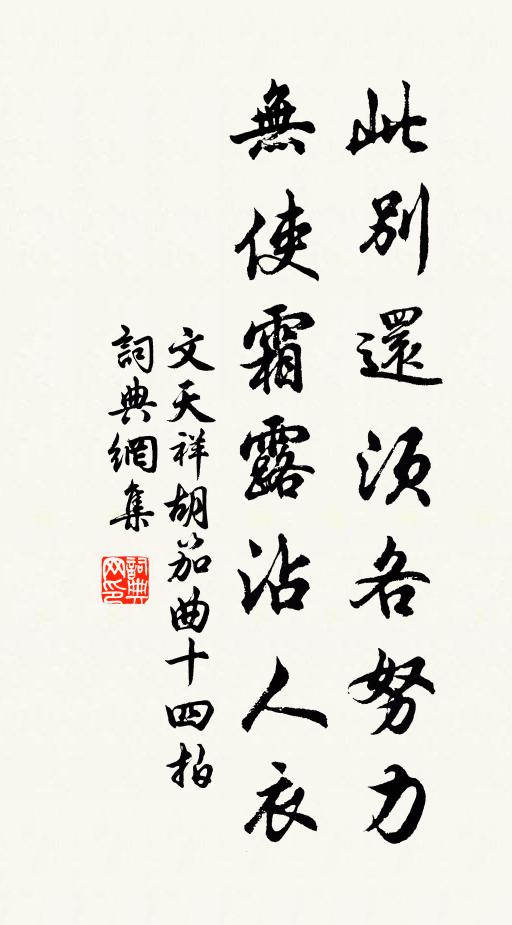 此別還須各努力
無使霜露沾人衣
文天祥胡笳曲十四拍
詞典網集
詞典网印